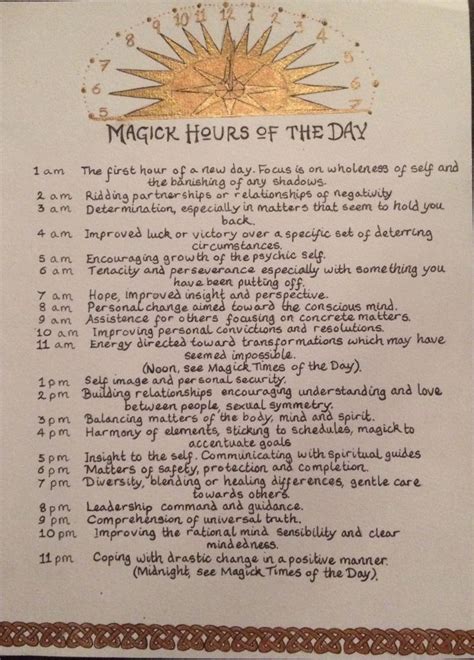 7 8 9 10 11 12 1 2 3 4 5
6 6
7 5
8 12
MAGICK HOURS OF THE DAY
1 am The first hour of a new day. Focus is on wholeness of self and
the banishing of any shadows.
2 am Ridding partnerships or relationships of negativity
3 am Determination, especially in matters that seem to hold you
back.
4 am Improved luck or victory over a specific set of deterring
circumstances.
5 am Encouraging growth of the psychic self.
6 am Tenacity and perseverance especially with something you
have been putting off.
7 am Hope, improved insight and perspective.
8 am Personal change aimed toward the conscious mind.
9 am Assistance for others focusing on concrete matters.
10 am Improving personal convictions and resolutions.
11 am Energy directed toward transformations which may have
seemed impossible.
(Noon, see Magick Times of the Day).
1 pm Self image and personal security.
2 pm Building relationships encouraging understanding and love
between people, sexual symmetry.
3 pm Balancing matters of the body, mind and spirit.
4 pm Harmony of elements, sticking to schedules, magick to
accentuate goals
5 pm Insight to the self. Communicating with spiritual guides
6 pm Matters of safety, protection and completion.
7 pm Diversity, blending or healing differences, gentle care
towards others.
8 pm Leadership command and guidance.
9 pm Comprehension of universal truth.
10 pm Improving the rational mind sensibility and clear
mindedness.
11 pm Coping with drastic change in a positive manner.
(Midnight, see Magick Times of the Day).